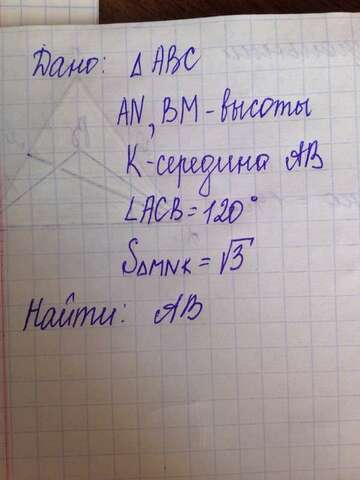 Дано: △ABC
AN, BM - высоты
K - середина AB
∠ACB = 120°
S△MNK = √3
Найти: AB